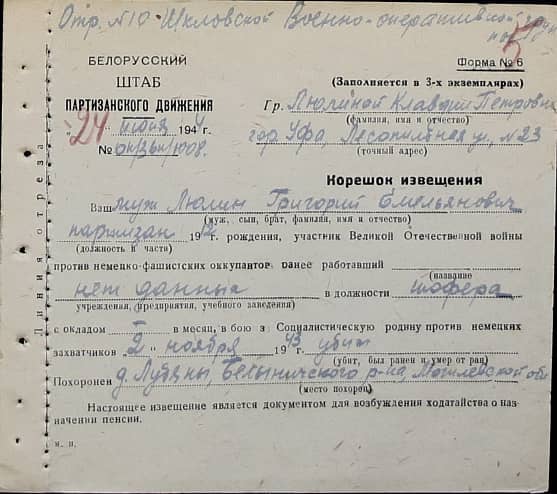 Отр. №10 Шкловской Военно-оперативной
БЕЛОРУССКИЙ
ШТАБ
ПАРТИЗАНСКОГО ДВИЖЕНИЯ
"24" июня 1944 г.
№
Форма № 6
(Заполняется в 3-х экземплярах)
Гр. Люлиной Клавдии Петровне
(фамилия, имя и отчество)
гор Уфа, Лесопильная ул, №23
(точный адрес)
Линия отреза
Корешок извещения
Ваш муж Люлин Григорий Емельянович
(муж, сын, брат, фамилия, имя и отчество)
партизан 1912 г. рождения, участник Великой Отечественной войны
(должность в части)
против немецко-фашистских оккупантов ранее работавший
(название
нет данных в должности шофера
учреждения, предприятия, учебного заведения)
с окладом — в месяц, в бою за Социалистическую родину против немецких
захватчиков "2" ноября 1943 убит
(убит, был ранен и умер от ран)
Похоронен д. Лубяны, Белыничского р-на, Могилевской обл
(место похорон)
Настоящее извещение является документом для возбуждения ходатайства о наз-
начении пенсии.
м. п.